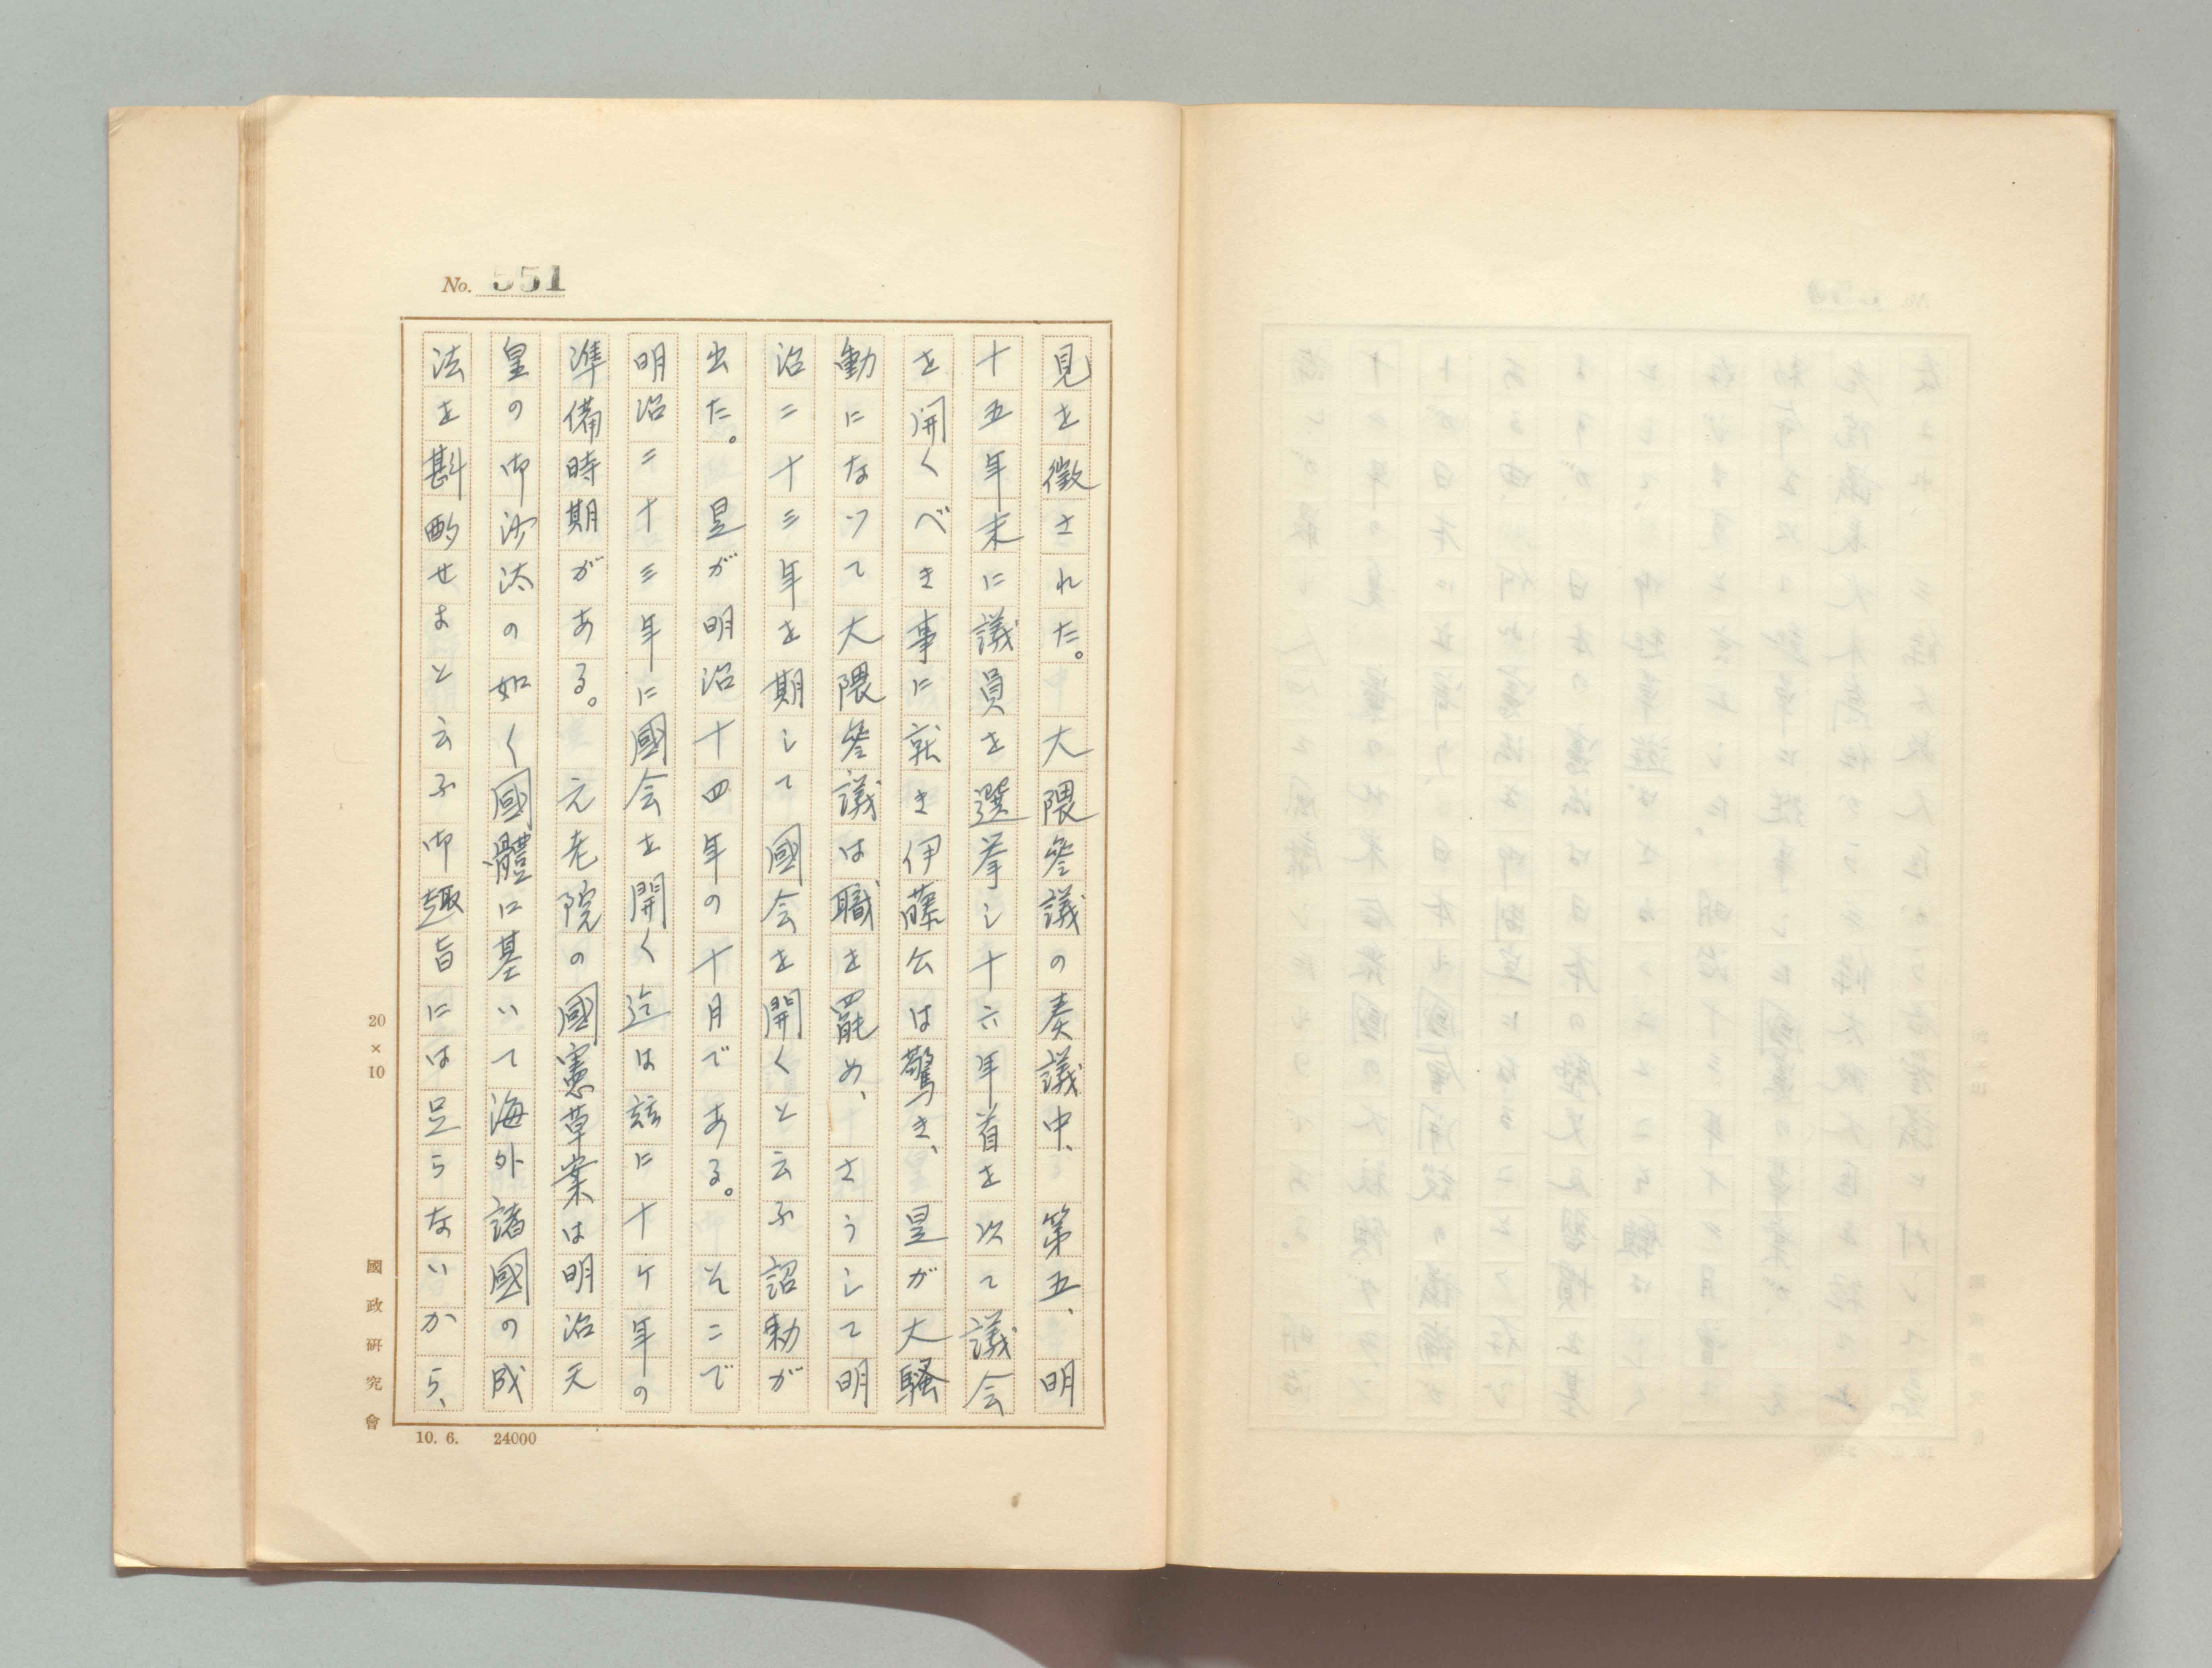 No. 551
見を徴された。　大隈参議の奏議中、第五、明
十五年末に議員を選挙し十六年首を以て議会
を開くべき事に就き伊藤公は驚き、是が大騒
動になつて大隈参議は職を罷め、さうして明
治二十三年を期して國会を開くと云ふ詔勅が
出た。　是が明治十四年の十月である。そこで
明治二十三年に國会を開く迄は玆に十ケ年の
準備時期がある。　元老院の國憲草案は明治天
皇の御沙汰の如く國體に基いて海外諸國の成
法を斟酌せよと云ふ御趣旨には足らないから、
20×10
國政研究會
10. 6.　24000